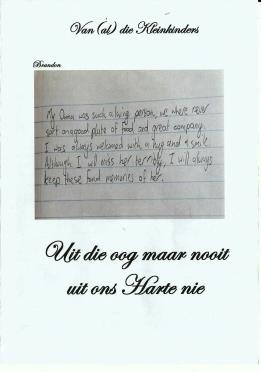 Van (al) die Kleinkinders
Brandon
My Ouma was such a loving person, we where never
soft on a good plate of food and great company.
I was always welcomed with a hug and a smile.
Although I will miss her terribly, I will always
keep these fond memories of her.
Uit die oog maar nooit
uit ons Harte nie